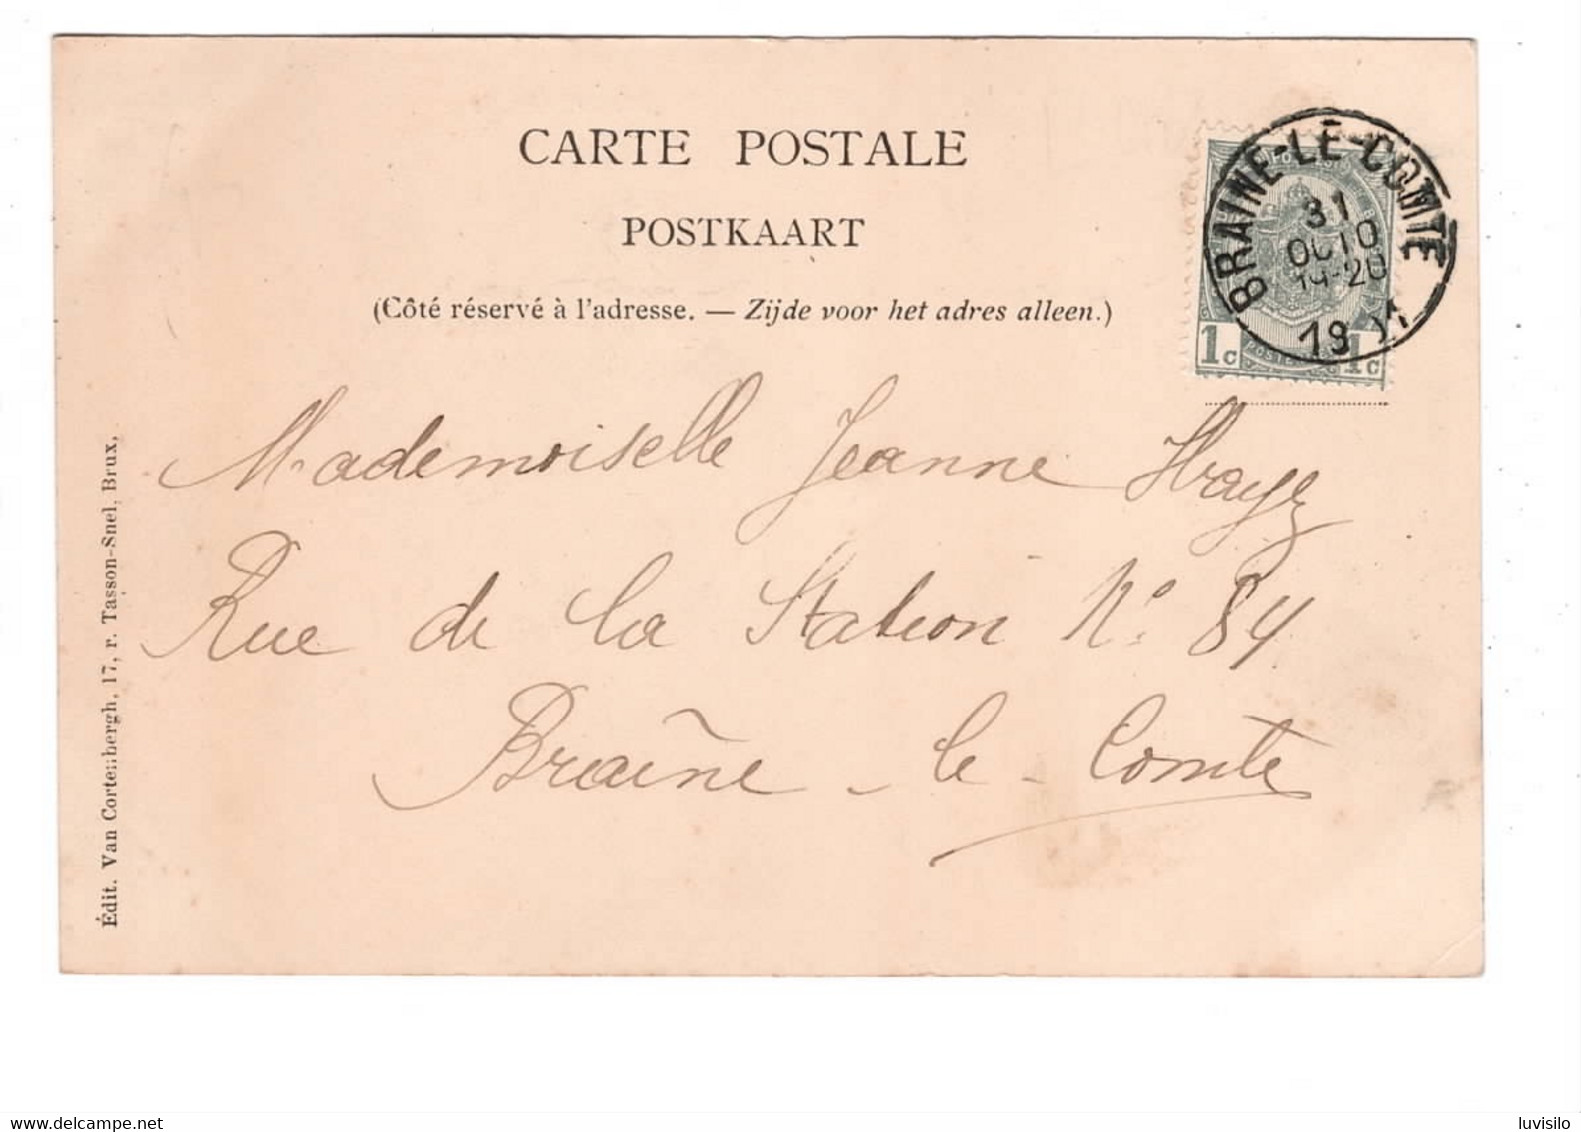 CARTE POSTALE
POSTKAART
(Côté réservé à l'adresse. — Zijde voor het adres alleen.)
BRAINE-LE-COMTE
31
OCTO
19-20
19
1c 1c
Mademoiselle Jeanne
Rue de la Station N° 84
Braine-le-Comte
Édit. Van Cortenbergh, 17, r. Tasson-Snel, Brux,
www.delcampe.net
luvisilo